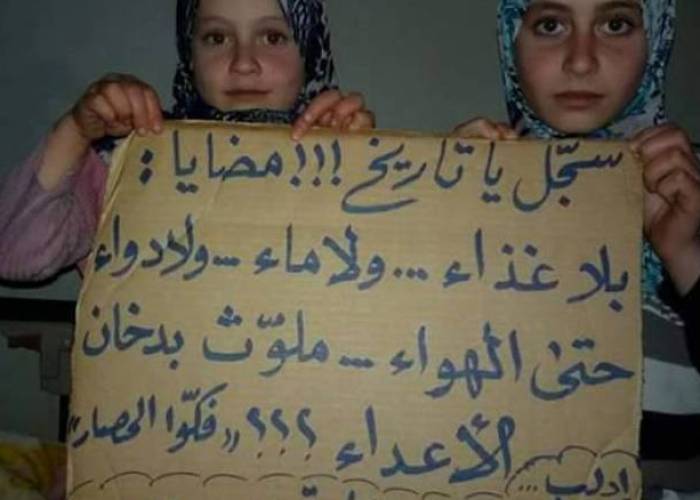 سجّل يا تاريخ !!! مضايا :
بلا غذاء ... ولا ماء ... ولا دواء
حتىٰ الهواء ... ملوّث بدخان
الأعداء ؟؟؟ «فكّوا الحصار»
ادلب ...